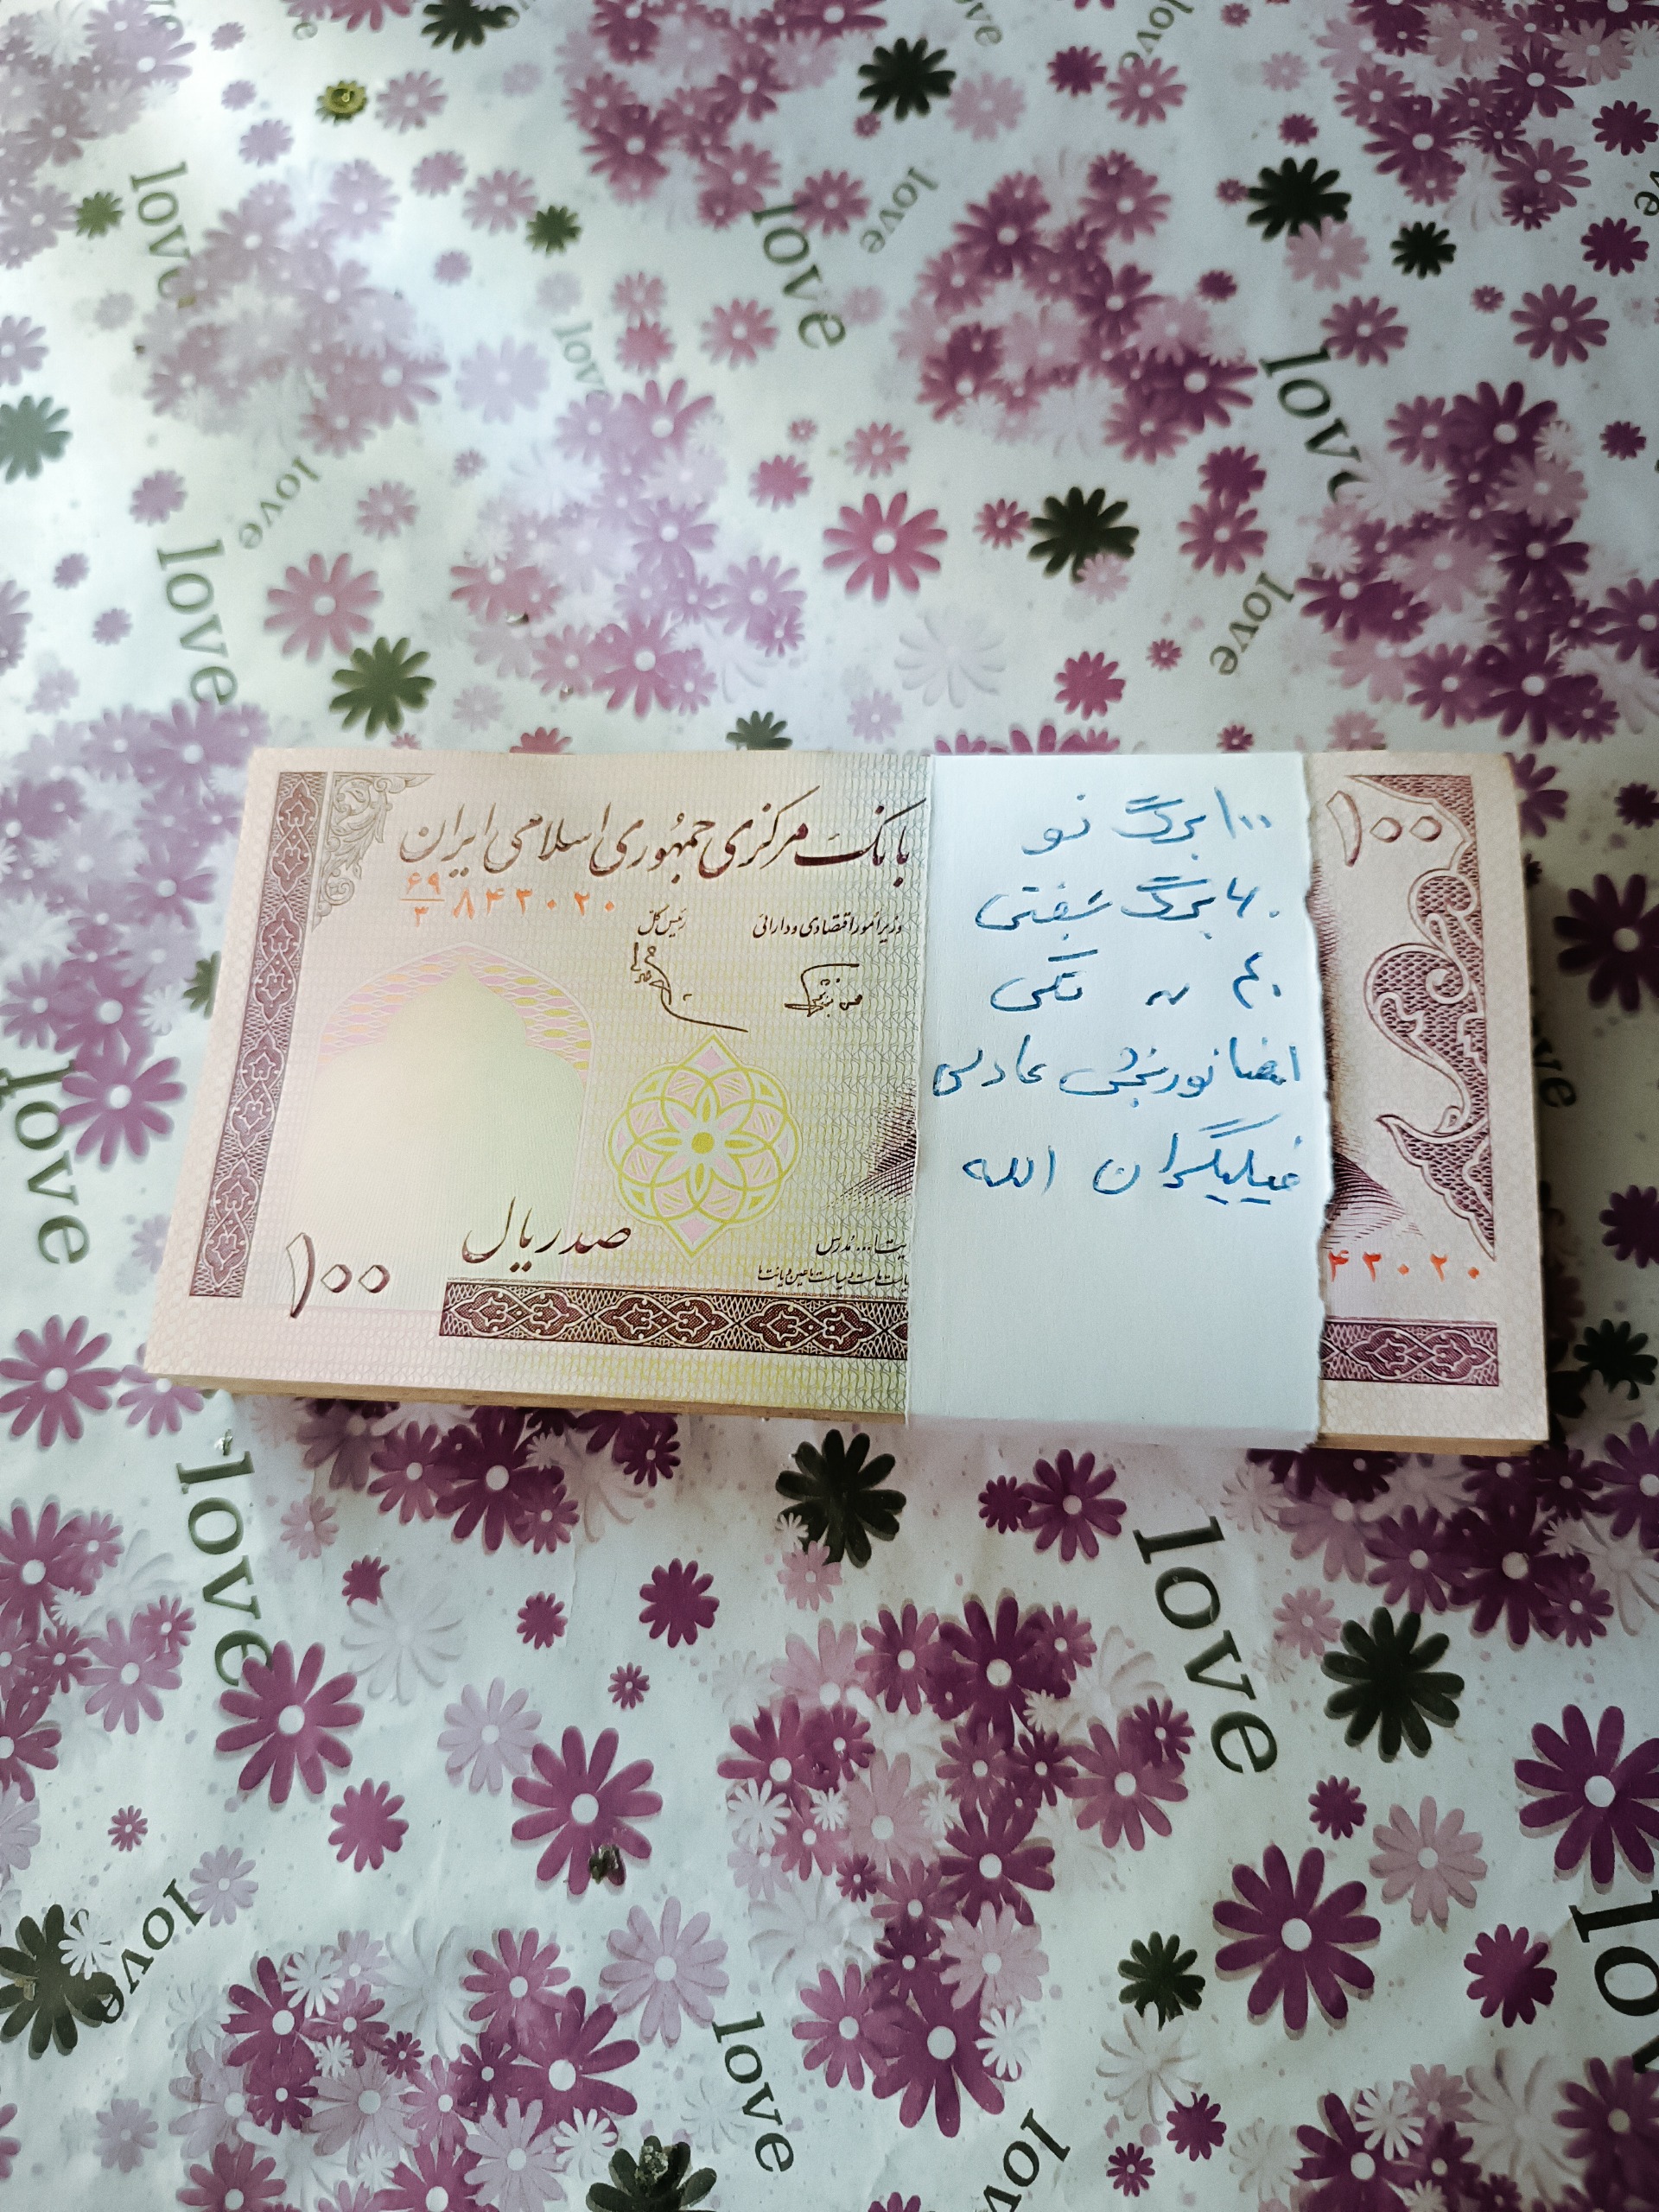 بانک مرکزی جمهوری اسلامی ایران
۶۹
۳
۸۴۳۰۲۰
رئیس کل
وزیر امور اقتصادی و دارائی
صد ریال
۱۰۰
مدرس
۱۰۰ برگ نو
۶۰ برگ جفتی
۴۰ 〃 تکی
امضا نوربخش عادلی
فیلیگران الله
۱۰۰
۴۳۰۲۰
love
love
love
love
love
love
love
love
love
love
love
love
love
love